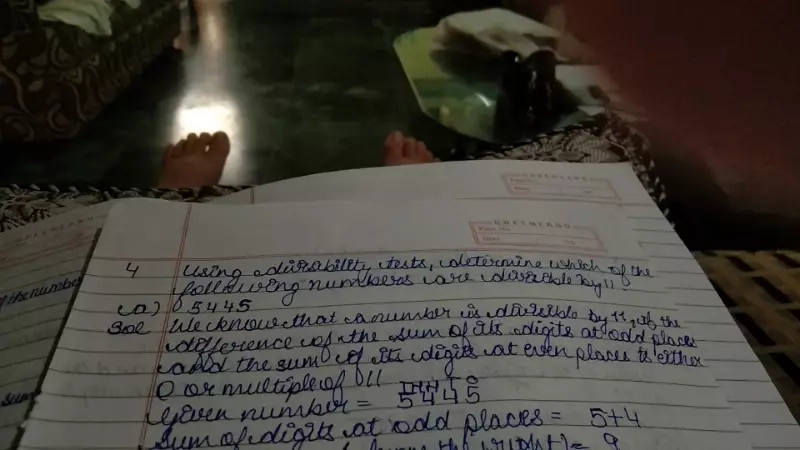 GREENLAND
Page No.
Date
4 Using divisibility tests, determine which of the
following numbers are divisible by 11:
(a) 5445
Sol We know that a number is divisible by 11, if the
difference of the sum of its digits at odd places
and the sum of its digits at even places is either
0 or multiple of 11
given number = 5445
Sum of digits at odd places = 5+4
the right) = 9
of the number
sum